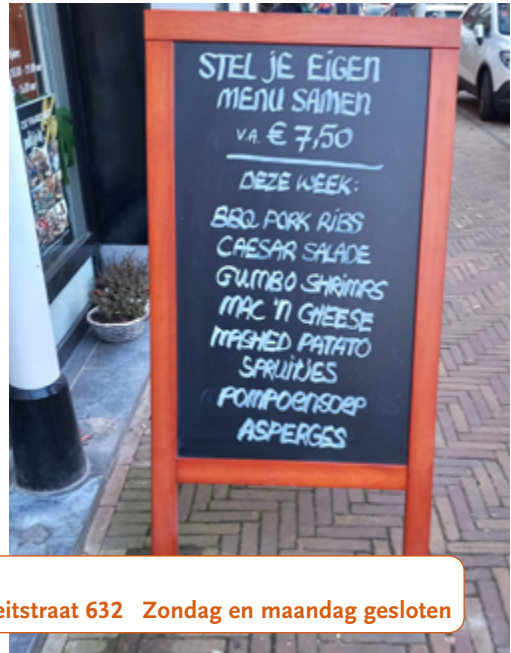 STEL JE EIGEN
MENU SAMEN
V.A. € 7,50
DEZE WEEK:
BBQ PORK RIBS
CAESAR SALADE
GUMBO SHRIMPS
MAC 'N CHEESE
MASHED PATATO
SPRUITJES
POMPOENSOEP
ASPERGES
eitstraat 632 Zondag en maandag gesloten